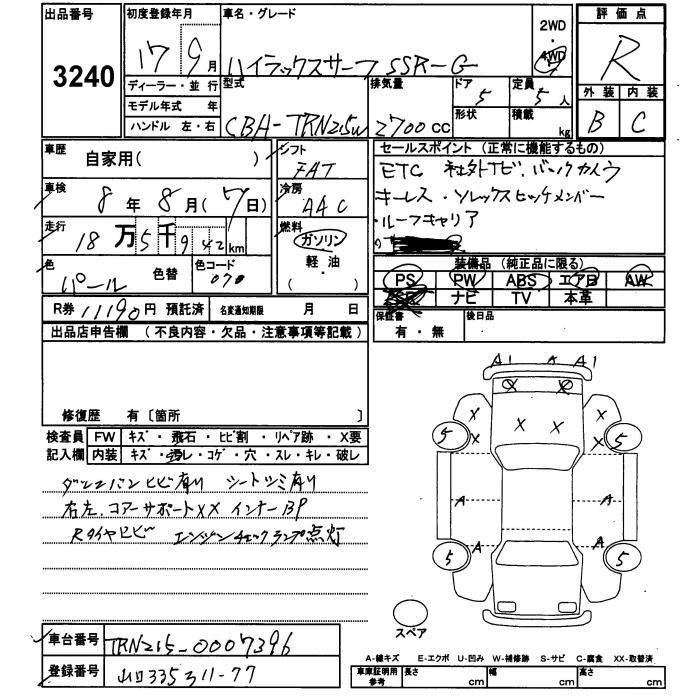 出品番号
3240
初度登録年月
17 9月
ディーラー・並行
モデル年式 年
ハンドル 左・右
車名・グレード
ハイラックスサーフ SSR-G
2WD
・
4WD
型式
CBA-TRN215W
排気量
2700cc
ドア
5
形状
定員
5人
積載
kg
評価点
R
外装 内装
B C
車歴
自家用( )
シフト
FAT
車検
8年8月(7日)
冷房
AAC
走行
18万5千942km
燃料
ガソリン
軽・油
( ・ )
色
パール 色替
色コード
070
セールスポイント(正常に機能するもの)
ETC 社外TV.バックカメラ
キーレス・ソレックスヒッチメンバー
・ルーフキャリア
装備品(純正品に限る)
PS PW ABS エアB AW
ナビ TV 本革
R券 11190円 預託済
名変通知期限 月 日
保証書
有・無
後日品
出品店申告欄 (不良内容・欠品・注意事項等記載)
修復歴 有〔箇所 〕
検査員 FW キズ・飛石・ヒビ割・リペア跡・X要
記入欄 内装 キズ・汚レ・コゲ・穴・スレ・キレ・破レ
ヒビ有り シートシミ有り
右左.コアーサポートXX インナーBP
Rタイヤヒビ エンジンチェックランプ点灯
A1 A A1
X X
X X X X
X X
5 5
A A A
A A
5 5
スペア
車台番号
TRN215-0007396
登録番号
山口335 す11-77
A-線キズ E-エクボ U-凹み W-補修跡 S-サビ C-腐食 XX-取替済
車庫証明用
参考
長さ cm
幅 cm
高さ cm